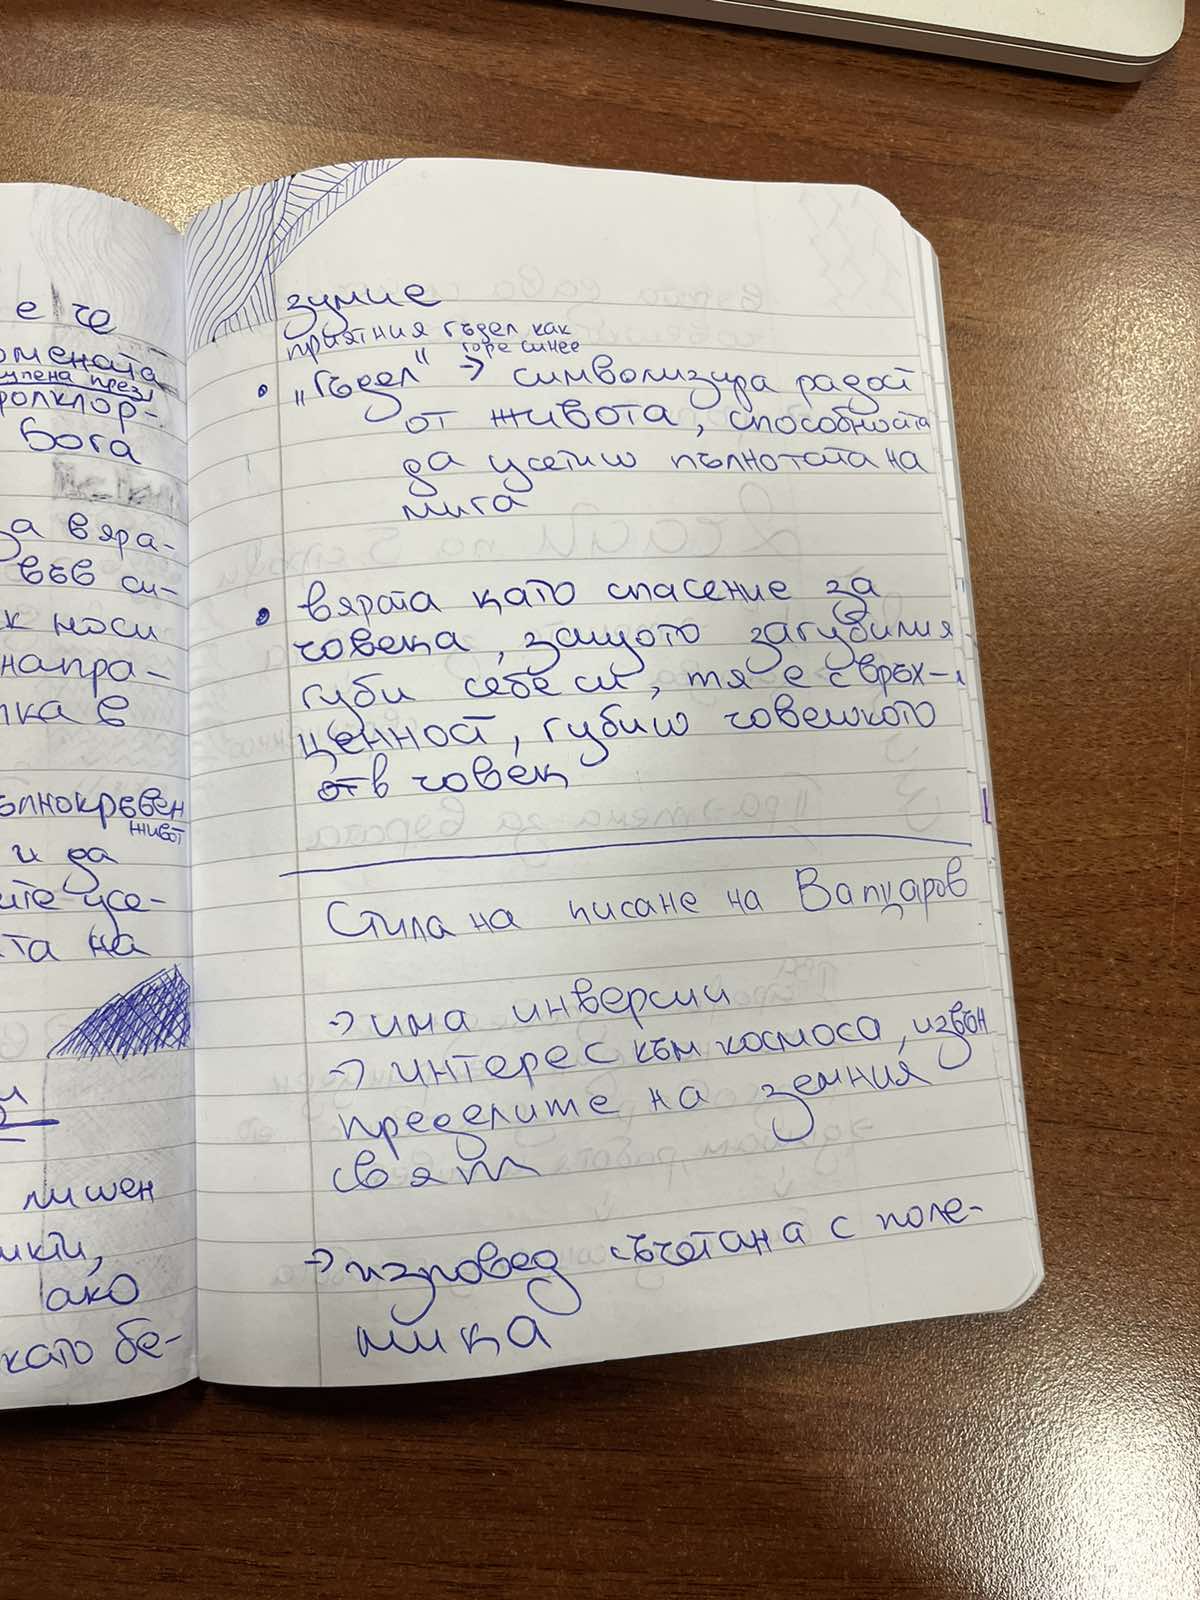 е че
омената
упена през
фолклор-
Бога
за вяра-
във си-
к носи
напра-
лка в
ълнокръвен
живот
и да
ите усе-
та на
и
лишен
икти,
ако
като бе-
зумие
приятния гъдел как
горе синее
• „Гъдел" → символизира радост
от живота, способността
да усетиш пълнотата на
мига
• вярата като спасение за
човека, защото загубилия
губи себе си, тя е свръх-
ценност, губиш човешкото
отв човек
Стила на писане на Вапцаров
→ има инверсии
→ интерес към космоса, извън
пределите на земния
свят
→ изповед съчетана с поле-
мика